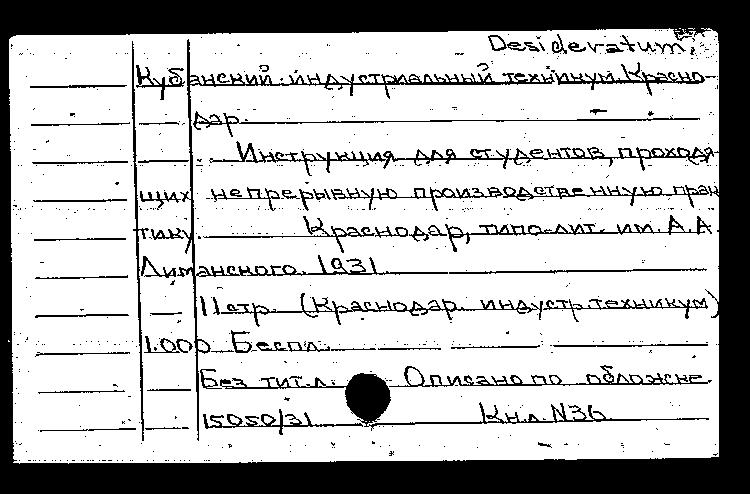 Desideratum.
Кубанский индустриальный техникум. Красно-
дар.
Инструкция для студентов, проходя-
щих непрерывную производственную прак
тику. Краснодар, типо-лит. им. А.А.
Лиманского. 1931
11 стр. (Краснодар. индустр. техникум)
1.000 Беспл.
Без тит.л. Описано по обложке.
15050/31 Кн.л. N36